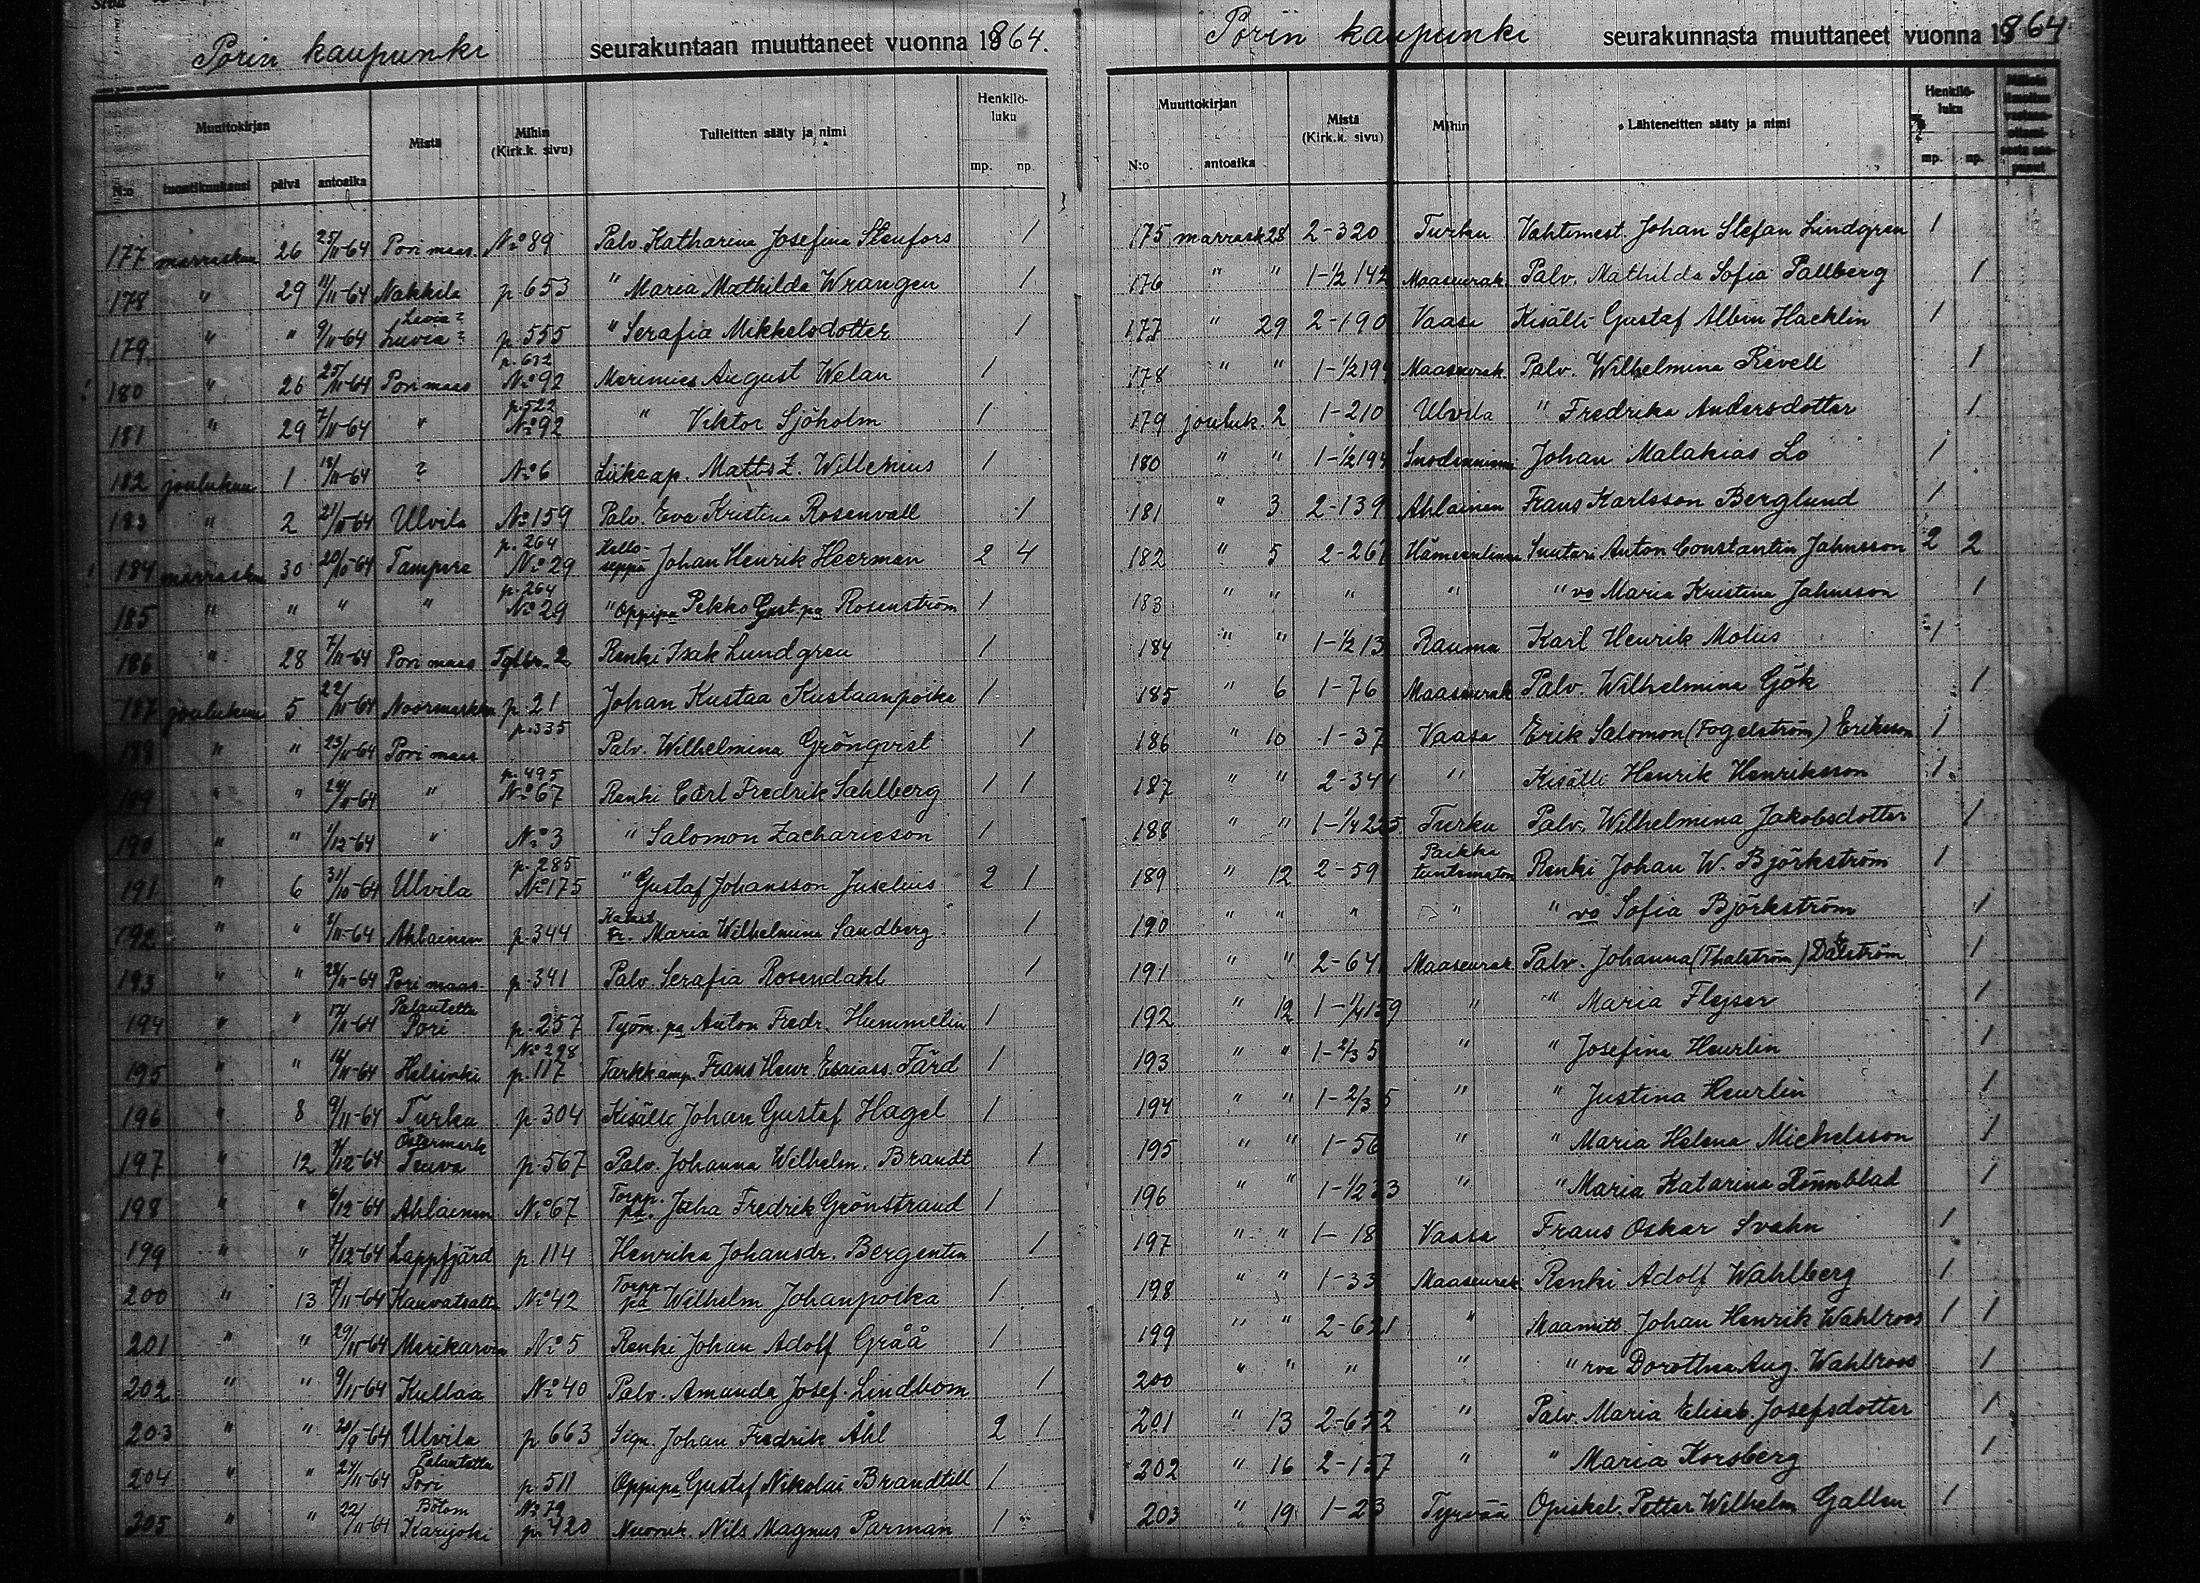 Porin kaupunki seurakuntaan muuttaneet vuonna 1864.
Muuttokirjan Mistä Mihin (Kirk.k. sivu) Tulleitten sääty ja nimi Henkilöluku
N:o kuukausi päivä antoaika mp. np.
177 marraskuu 26 25/11-64 Pori maas. No 89 Palv. Katharina Josefina Stenfors 1
178 " 29 11/11-64 Nakkila p. 653 " Maria Mathilda Wrangen 1
Lavia?
179 " " 9/11-64 Luvia? p. 555 " Serafia Mikkelsdotter 1
p. 632
180 " 26 25/11-64 Pori maas No 92 Merimies August Welan 1
p. 522
181 " 29 7/11-64 " No 92 " Viktor Sjöholm 1
182 joulukuu 1 18/11-64 ? No 6 Liikeap. Matts Z. Willenius 1
183 " 2 21/11-64 Ulvila No 159 Palv. Eva Kristina Rosenvall 1
p. 264
184 marrasku 30 20/10-64 Tampere No 29 Kelloseppä Johan Henrik Heerman 2 4
p. 264
185 " " " " No 29 " Oppipa Pekko Gust.pa Rosenström 1
186 " 28 7/11-64 Pori maas Tglbr. 2 Renki Isak Lundgren 1
187 joulukuu 5 22/11-64 Noormarkku p. 21 Johan Kustaa Kustaanpoika 1
p. 335
188 " " 23/11-64 Pori maas Palv. Wilhelmina Grönqvist 1
p. 495
189 " " 24/11-64 " No 67 Renki Carl Fredrik Sahlberg 1 1
190 " " 1/12-64 " No 3 " Salomon Zachariesson 1
p. 285
191 " 6 31/10-64 Ulvila No 175 " Gustaf Johansson Juselius 2 1
192 " " 8/11-64 Ahlainen p. 344 Maria Wilhelmina Sandberg 1
193 " " 28/11-64 Pori maas p. 341 Palv. Serafia Rosendahl 1
Palautettu
194 " " 17/11-64 Pori p. 257 Työm. pa Anton Fredr. Hummelin 1
No 228
195 " " 16/11-64 Helsinki p. 117 Tarkkamp. Frans Henr. Esaiass. Färd 1
196 " 8 9/11-64 Turku p. 304 Kisälli Johan Gustaf Hagel 1
Östermark
197 " 12 4/12-64 Teuva p. 567 Palv. Johanna Wilhelm. Brandt 1
198 " " 6/12-64 Ahlainen No 67 Torpp. pa. Juha Fredrik Grönstrand 1
199 " " 4/12-64 Lappfjärd p. 114 Henrika Johansdr. Bergentin 1
200 " 13 7/11-64 Kauvatsalta No 42 Torpp. pa Wilhelm Johanpoika 1
201 " " 29/11-64 Merikarvia No 5 Renki Johan Adolf Gråå 1
202 " " 9/11-64 Kullaa No 40 Palv. Amanda Josef. Lindbom 1
203 " " 28/9-64 Ulvila p 663 Sign. Johan Fredrik Åhl 2 1
Palautettu
204 " " 27/11-64 Pori p. 511 Oppipa Gustaf Nikolai Brandtell 1
Bötom No 79
205 " " 22/11-64 Karijoki p. 420 Nuoruk. Nils Magnus Parman 1
Porin kaupunki seurakunnasta muuttaneet vuonna 1864
Muuttokirjan Mistä (Kirk.k. sivu) Mihin Lähteneitten sääty ja nimi Henkilöluku
N:o antoaika mp. np.
175 marrask 28 2-320 Turku Vahtimest. Johan Stefan Lindgren 1
176 " " 1-1/2 142 Maaseurak. Palv. Mathilda Sofia Pallberg 1
177 " 29 2-190 Vaasa Kisälli Gustaf Albin Hacklin 1
178 " " 1-1/2 194 Maaseurak Palv. Wilhelmina Revell 1
179 jouluk. 2 1-210 Ulvila " Fredrika Andersdotter 1
180 " " 1-1/2 194 Suodenniemi Johan Malakias Lo 1
181 " 3 2-139 Ahlainen Frans Karlsson Berglund 1
182 " 5 2-267 Hämeenlinna Suutari Anton Constantin Jahnsson 2 2
183 " " " " " vo Maria Kristina Jahnsson 1
184 " " 1-1/2 13 Rauma Karl Henrik Molus 1
185 " 6 1-76 Maaseurak Palv. Wilhelmina Gök 1
186 " 10 1-37 Vaasa Erik Salomon (Fogelström) Eriksson 1
187 " " 2-341 " Kisälli Henrik Henriksson 1
188 " " 1-1/4 225 Turku Palv. Wilhelmina Jakobsdotter 1
Paikka
189 " 12 2-59 tuntematon Renki Johan W. Björkström 1
190 " " " " " vo Sofia Björkström 1
191 " " 2-641 Maaseurak. Palv. Johanna (Thalström) Dalström 1
192 " 12 1-1/4 159 " " Maria Flejser 1
193 " " 1-2/3 5 " " Josefina Heurlin 1
194 " " 1-2/3 5 " " Justina Heurlin 1
195 " " 1-56 " " Maria Helena Michelsson 1
196 " " 1-1/2 33 " " Maria Katarina Rönnblad 1
197 " " 1-18 Vaasa Frans Oskar Svahn 1
198 " " 1-33 Maaseurak Renki Adolf Wahlberg 1
199 " " 2-621 " Maamitt. Johan Henrik Wahlroos 1 1
200 " " " " " rva Dorothea Aug. Wahlroos 1
201 " 13 2-652 " Palv. Maria Elisab. Josefsdotter 1
202 " 16 2-157 " " Maria Korsberg 1
203 " 19 1-23 Tyrvää Opiskel. Petter Wilhelm Gallen 1